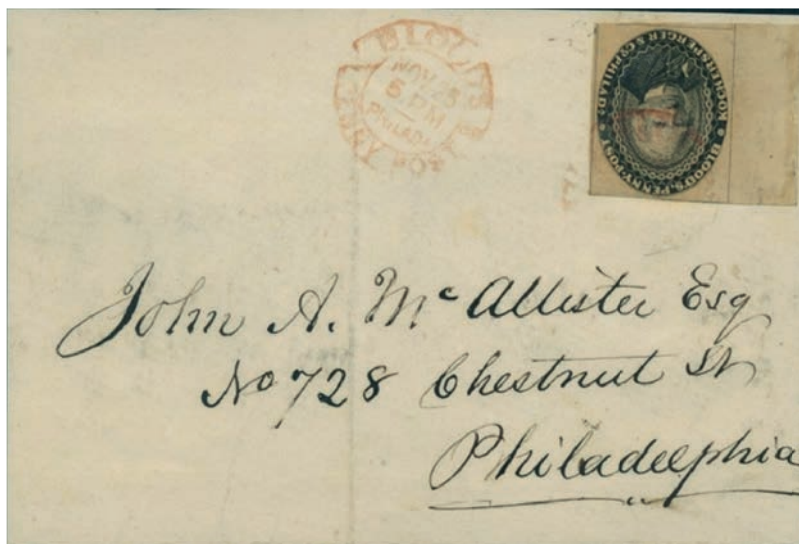 BLOOD'S
NOV 25
5 PM
PHILADA
PENNY POST
BLOOD'S PENNY POST
KOCHERSPERGER & CO PHILADA
John A. Mc Allister Esq
No 728 Chestnut St
Philadelphia